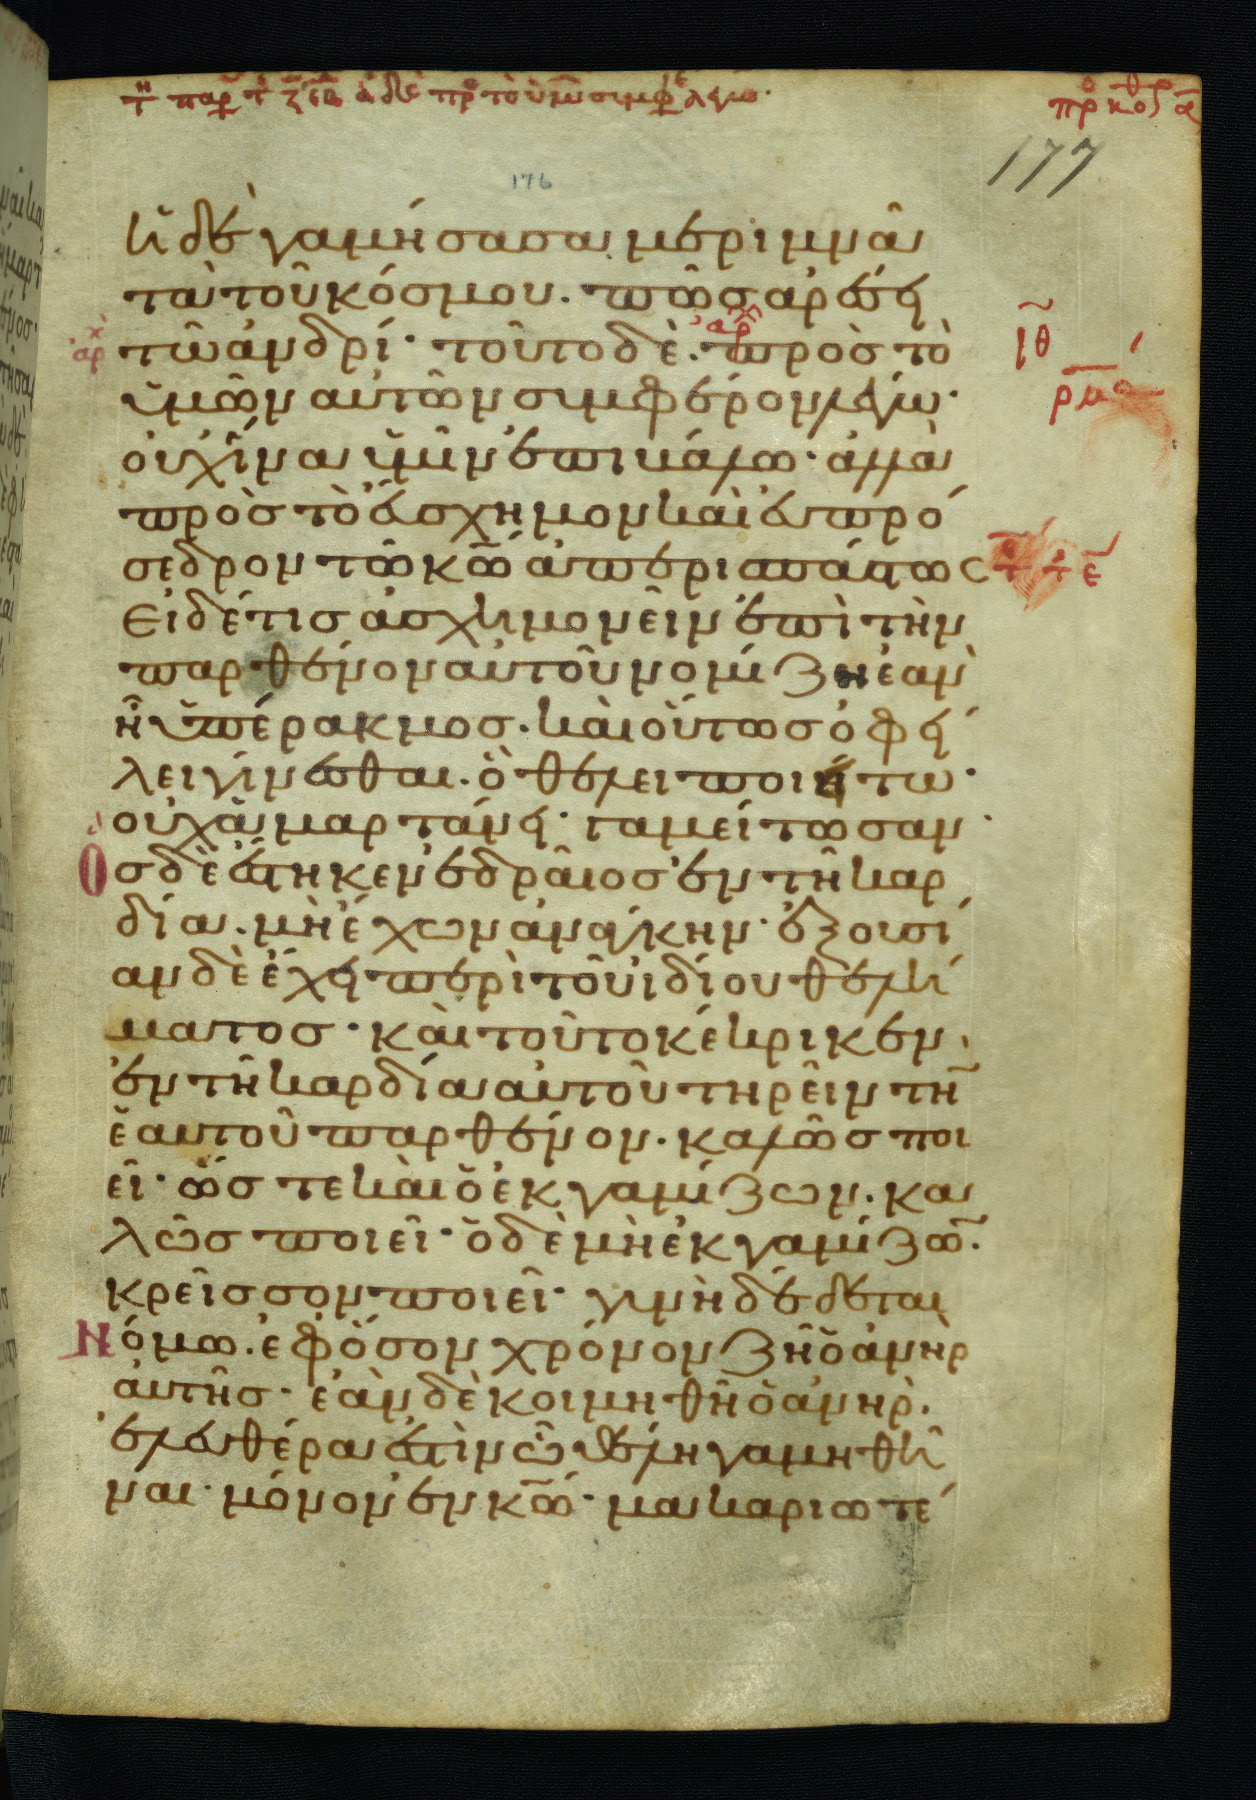 177
176
ἡ δὲ γαμήσασα μεριμνᾶ
τὰ τοῦ κόσμου. πῶς ἀρέσει
τῶ ἀνδρί· τοῦτο δὲ. πρὸς τὸ
ὑμῶν αὐτῶν συμφέρον λέγω·
οὐχ ἵνα ὑμῖν ἐπιβάλω· ἀλλὰ
πρὸς τὸ εὔσχημον καὶ εὐπρό
σεδρον τῶ κῶ ἀπερισπάστως
Εἰ δέ τις ἀσχημονεῖν ἐπὶ τὴν
παρθένον αὐτοῦ νομίζη ἐὰν
ἦ ὑπέρακμος. καὶ οὕτως ὀφεί
λει γίνεσθαι. ὃ θέλει ποιείτω·
οὐχ ἁμαρτάνει· γαμείτωσαν·
Ὃς δὲ ἕστηκεν ἑδραῖος ἐν τῆ καρ
δία. μὴ ἔχων ἀνάγκην· ἐξουσί
αν δὲ ἔχει περὶ τοῦ ἰδίου θελή
ματος· καὶ τοῦτο κέκρικεν
ἐν τῆ καρδία αὐτοῦ τηρεῖν τὴ
ἑαυτοῦ παρθένον. καλῶς ποι
εῖ· ὥστε καὶ ὁ ἐκγαμίζων. κα
λῶς ποιεῖ· ὁ δὲ μὴ ἐκγαμίζω.
κρεῖσσον ποιεῖ· γυνὴ δέδεται
Νόμω. ἐφ ὅσον χρόνον ζῆ ὁ ἀνὴρ
αὐτῆς· ἐὰν δὲ κοιμηθῆ ὁ ἀνὴρ.
ἐλευθέρα ἐστὶν ὧ θέλη γαμηθῆ
ναι· μόνον ἐν κῶ· μακαριωτέ
ιθ